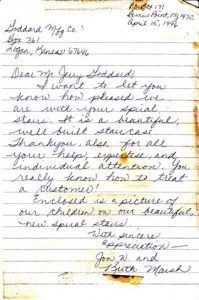 P.O. Box 171
Goddard Mfg Co
Box 361
April 15, 1996
Logan, Kansas 67646
Dear Mr. Jerry Goddard,
I want to let you
know how pleased we
are with your spiral
stairs. It is a beautiful,
well built staircase.
Thank you, also, for all
your help, expertise, and
individual attention. You
really know how to treat
a customer!
Enclosed is a picture of
our children on our beautiful,
new spiral stairs.
With sincere
appreciation—
Jon W. and
Ruth Marsh